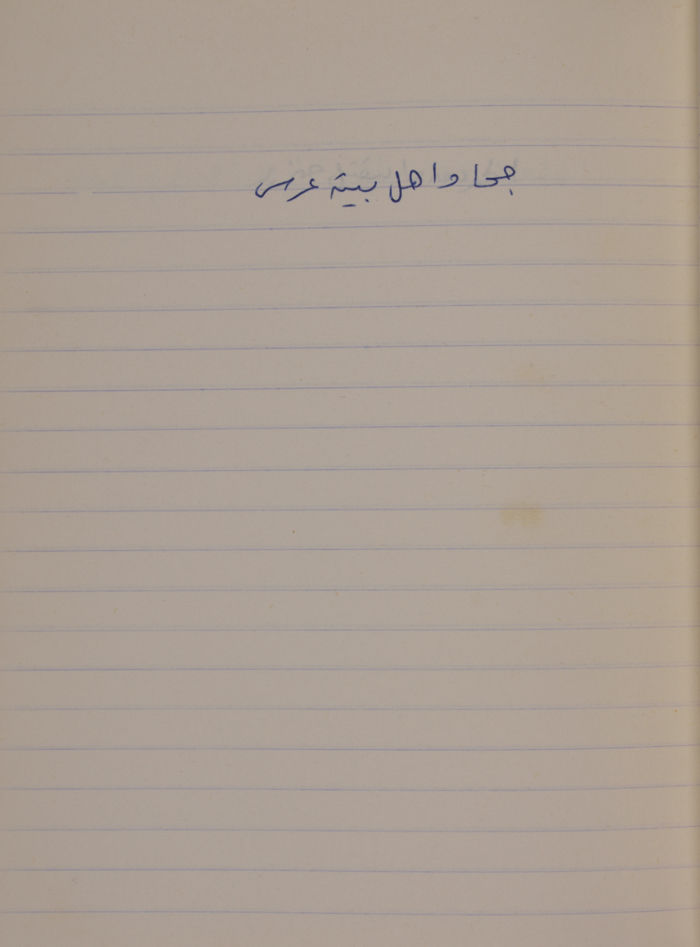 جحا واهل بيته عرسى